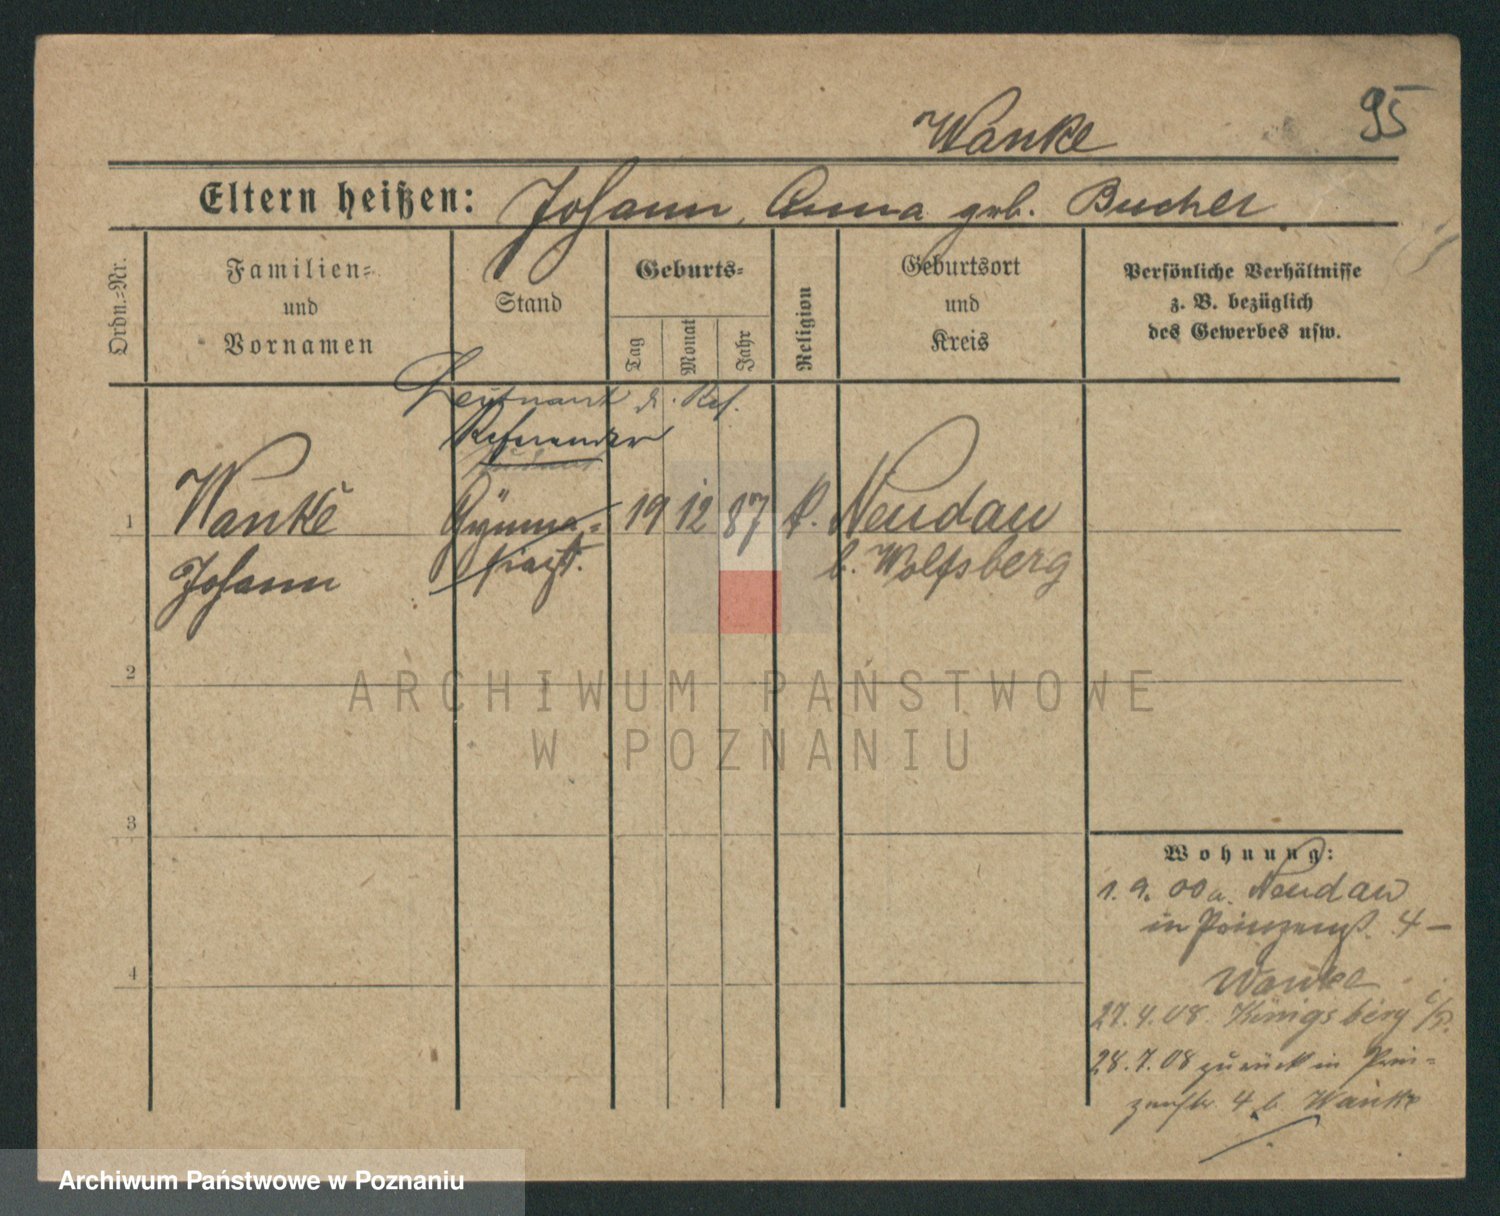 95
Wanke
Eltern heißen: Johann, Anna geb. Bucher
Ordn.=Nr.
Familien=
und
Vornamen
Stand
Geburts=
Tag
Monat
Jahr
Religion
Geburtsort
und
Kreis
Persönliche Verhältnisse
z. B. bezüglich
des Gewerbes usw.
Leutnant d. Res.
Referendar
1 Wanke Gymna= 19 12 87 k. Neudau
Johann siast. b. Wolfsberg
2
3
4
Wohnung:
1. 9. 00 a. Neudau
in Prinzenstr. 4 –
Wanke
27.4.08. Königsberg i/P.
28.7.08 zurück in Prin=
zenstr. 4 b Wanke
ARCHIWUM PAŃSTWOWE
W POZNANIU
Archiwum Państwowe w Poznaniu